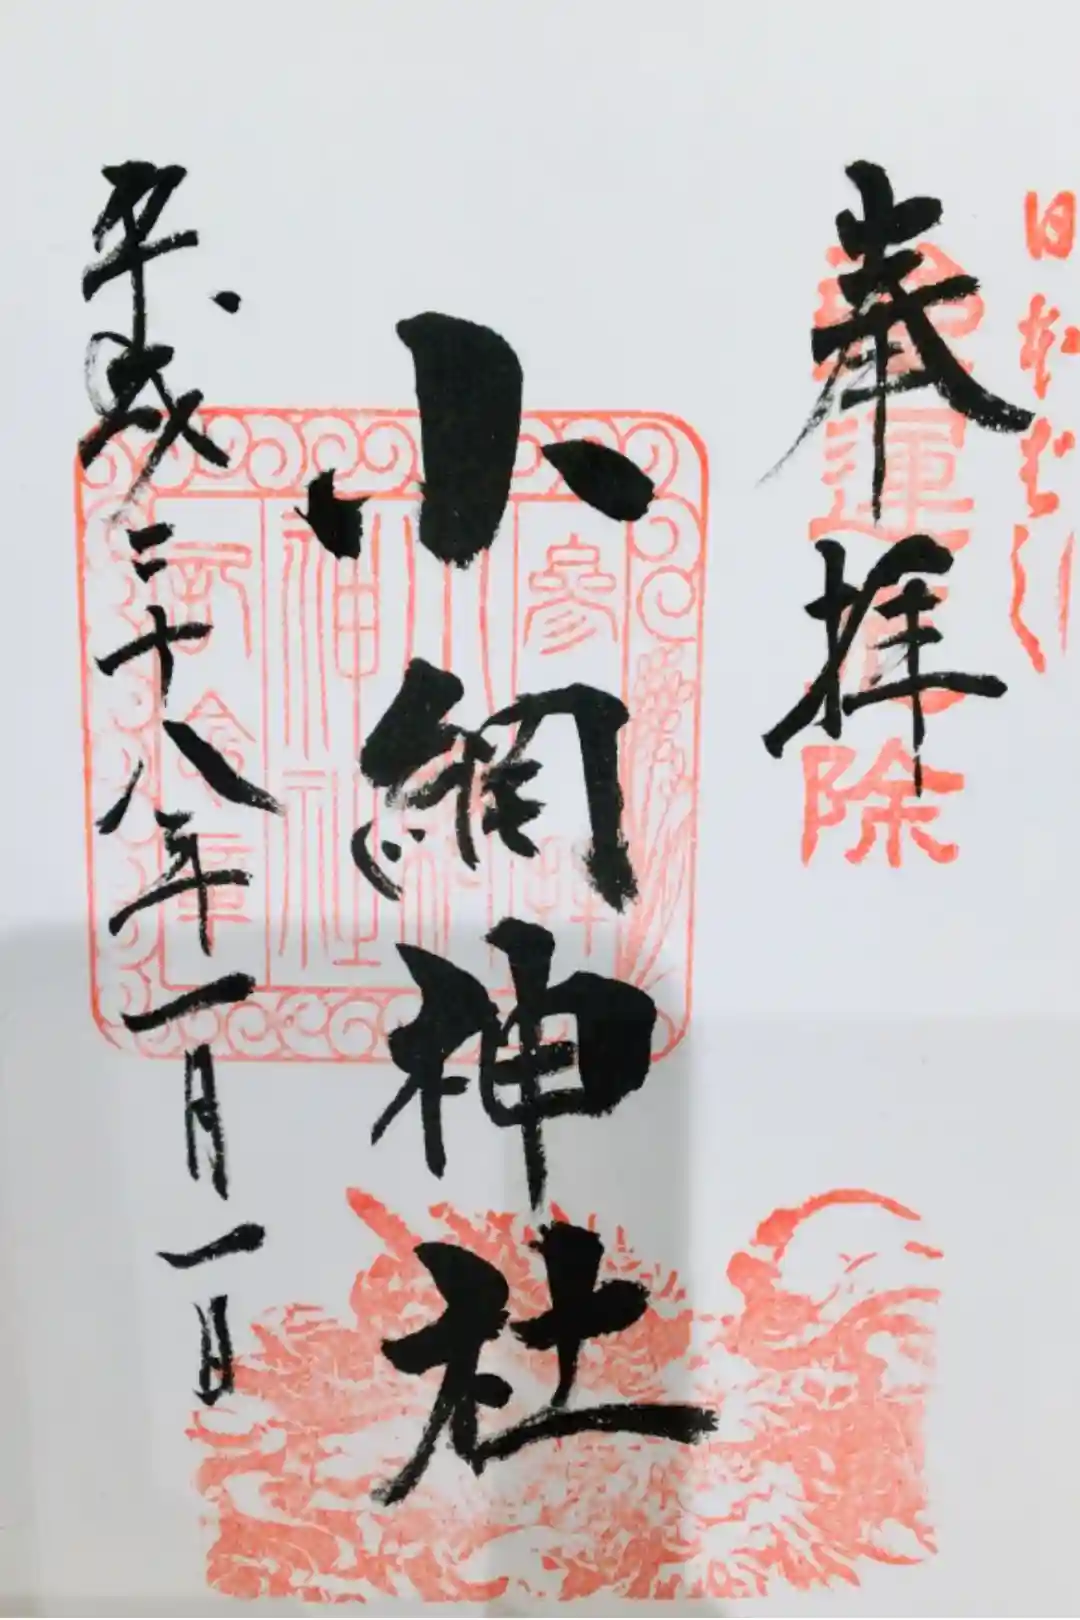 日本ばし
強運厄除
奉拝
小網神社
平成二十八年一月一日
神社